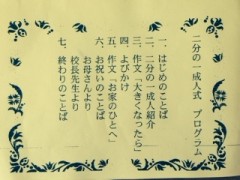 二分の一成人式　プログラム
一、はじめのことば
二、二分の一成人紹介
三、作文「大きくなったら」
四、よびかけ
五、作文「お家のひとへ」
六、お祝いのことば
お母さんより
校長先生より
七、終わりのことば